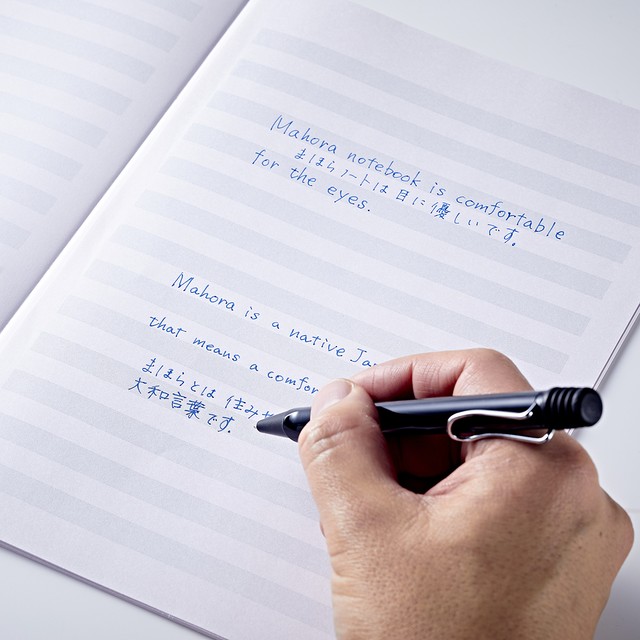 Mahora notebook is comfortable
まほらノートは目に優しいです。
for the eyes.
Mahora is a native
that means a
まほらとは 住み
大和言葉です。